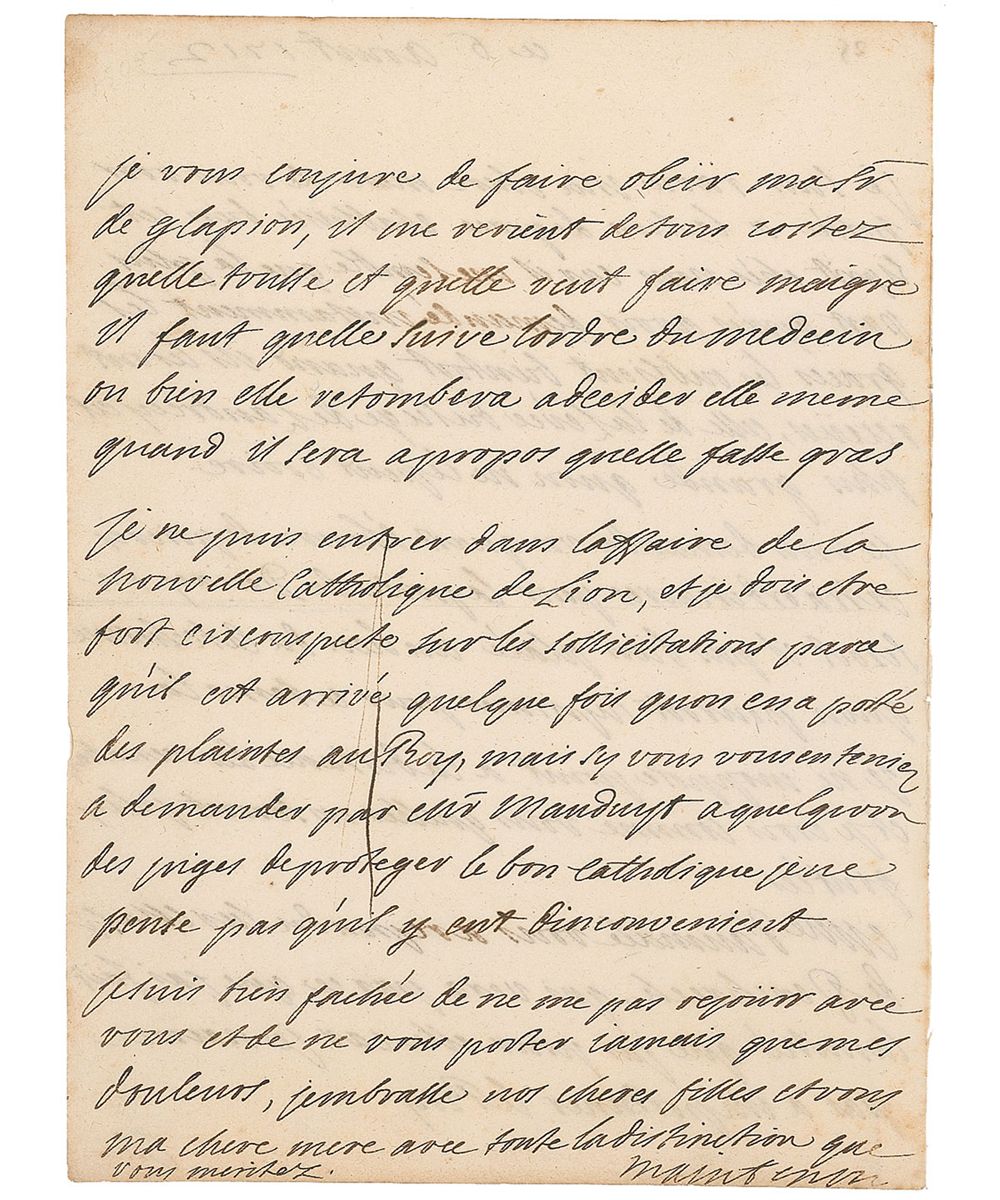 je vous conjure de faire obeïr ma Sr
de glapion, il me revient de tous costez
quelle tousse et quelle veut faire maigre
il faut quelle suive lordre du medecin
ou bien elle retombera a decider elle meme
quand il sera apropos quelle fasse gras
je ne puis entrer dans laffaire de la
nouvelle Catholique de Lion, et je dois etre
fort circonspecte sur les sollicitations parce
quil est arrivé quelque fois quon en a porté
des plaintes au Roy, mais sy vous vous en teniez
a demander par Mauduyt a quelquun
des juges de proteger le bon Catholique je ne
pense pas quil y eut dinconvenient
je suis bien fachée de ne me pas rejouir avec
vous et de ne vous porter iamais que mes
douleurs, jembrasse nos cheres filles et vous
ma chere mere avec toute la distinction que
vous meritez.
Maintenon